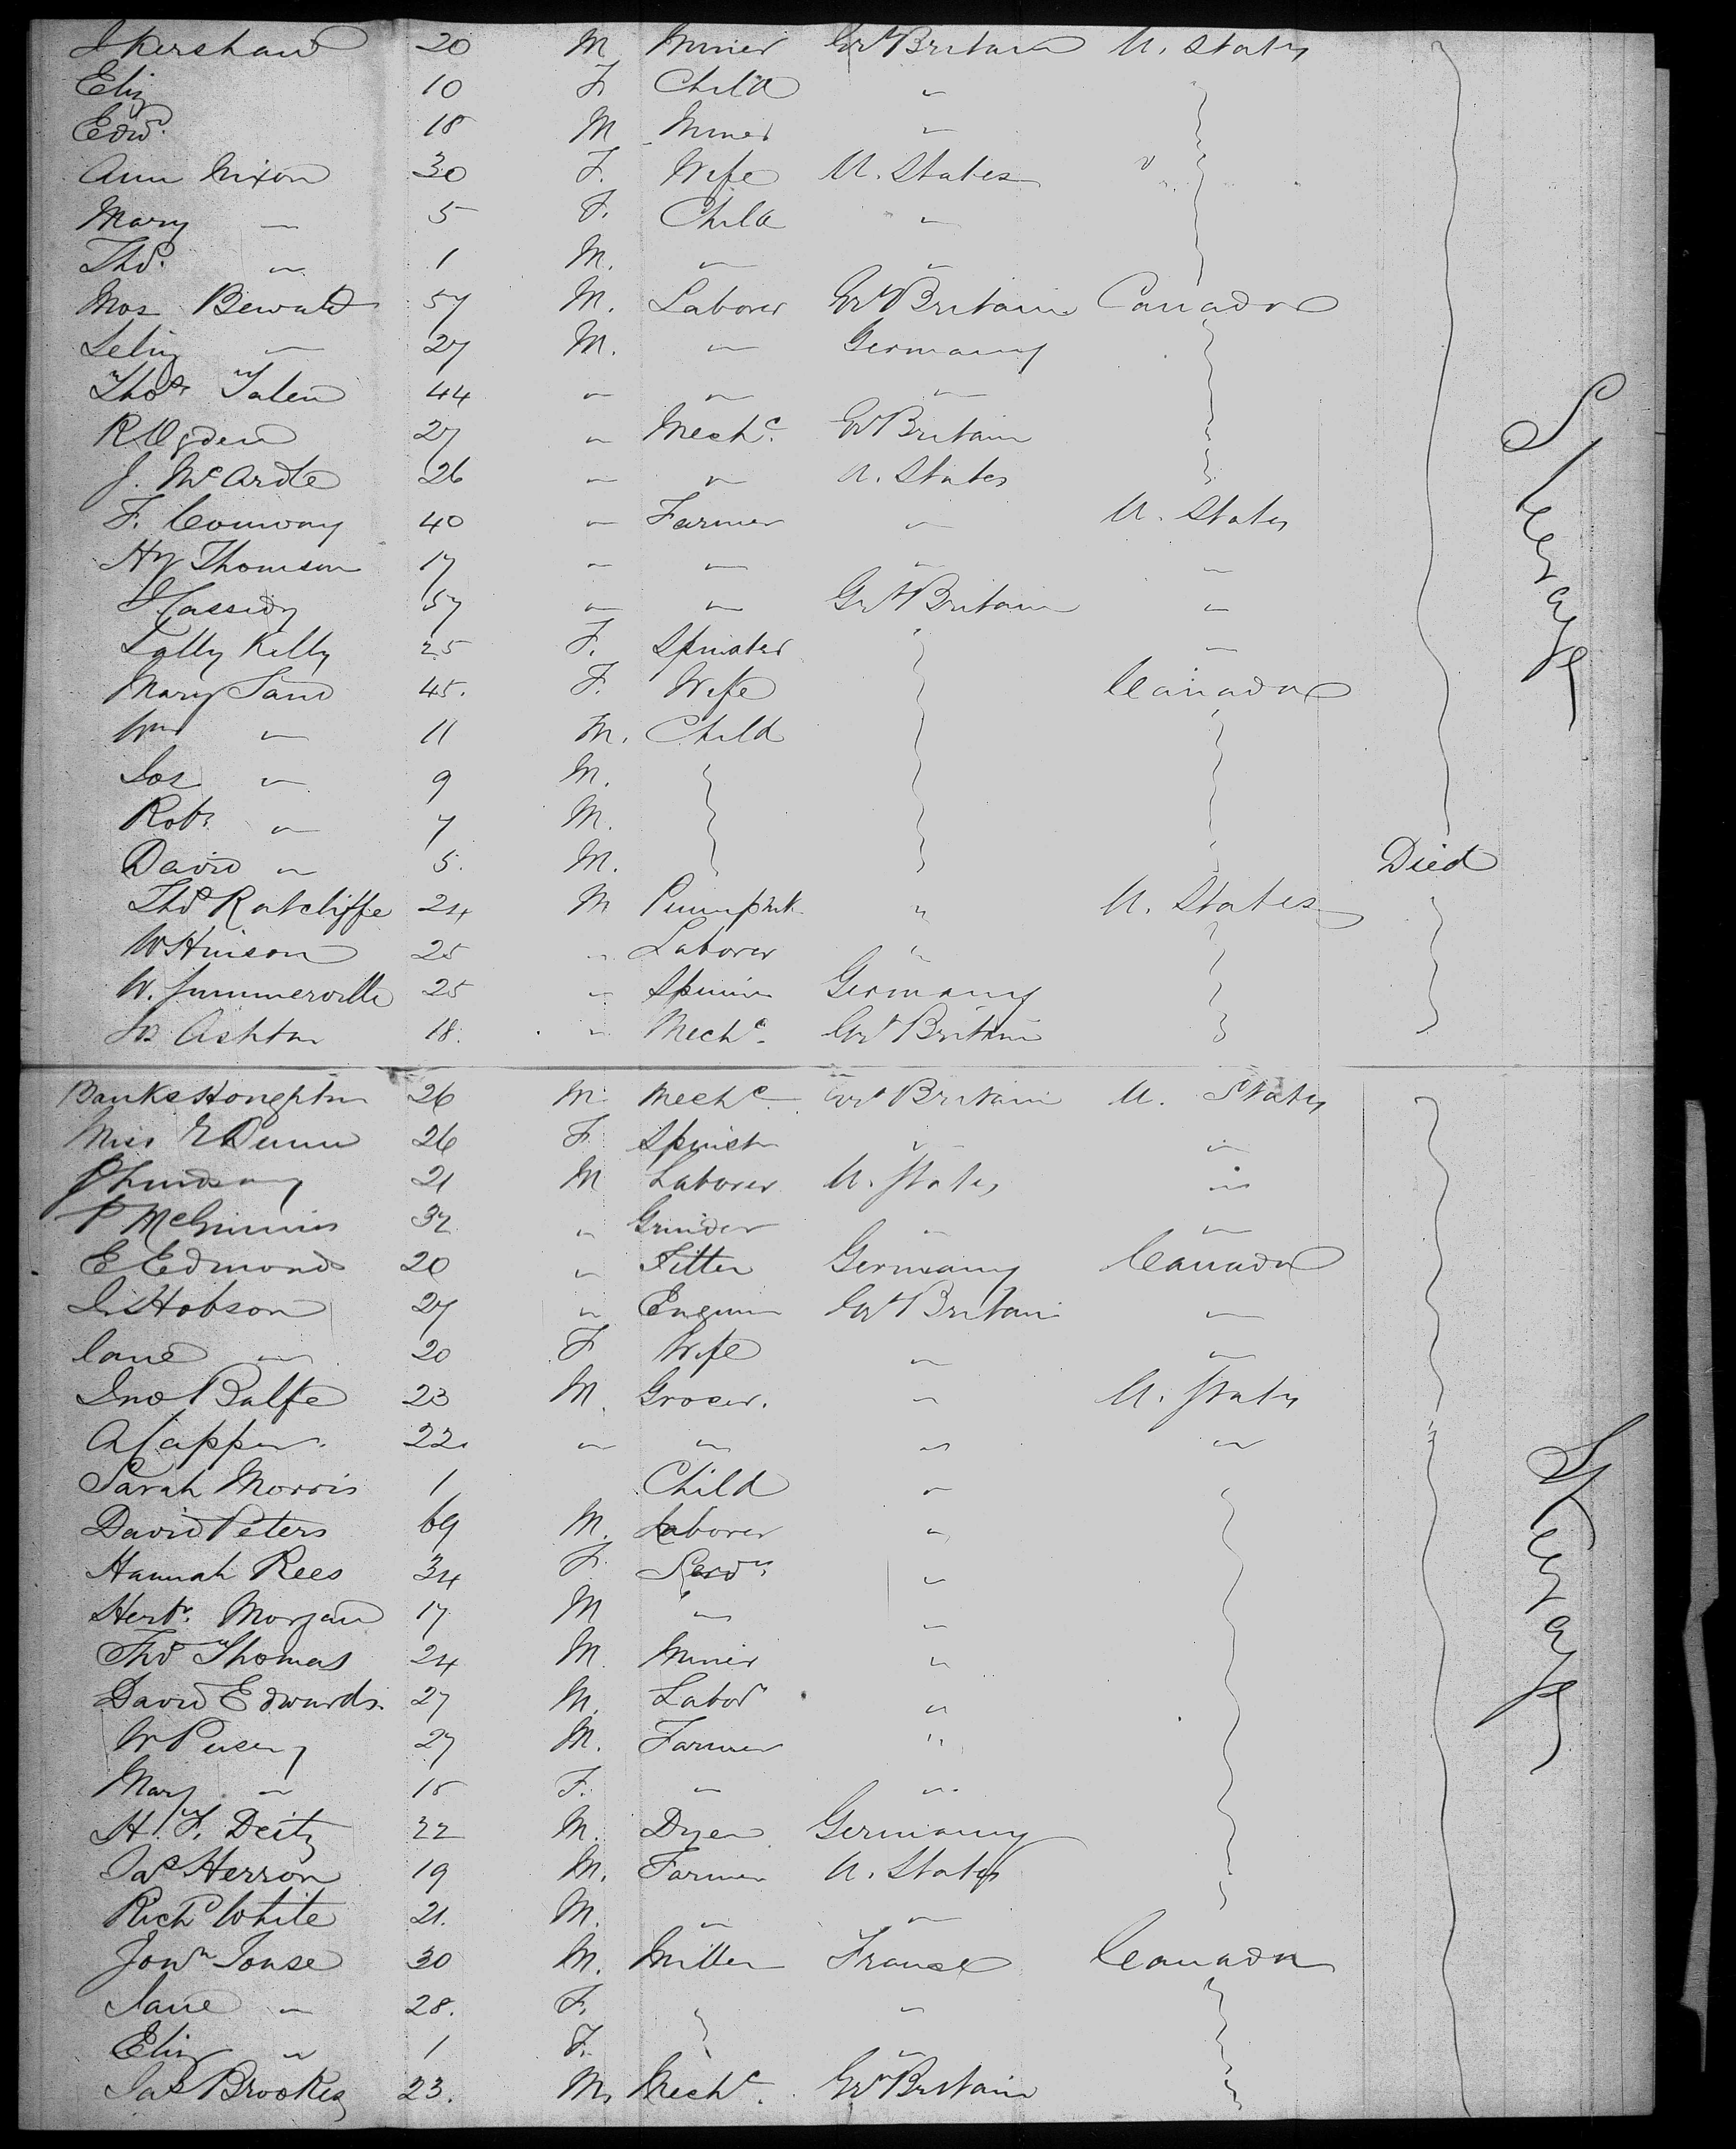 J Kershaw 20 M Miner Grt Britain U. States
Eliz 10 F Child "
Edwd. 18 M Miner "
Ann Nixon 30 F. Wife U. States "
Mary " 5 F. Child "
Thos. " 1 M. " "
Mos Bewald 57 M. Laborer Grt Britain Canada
" 27 M. " Germany
Thos 44 " " "
R Ogden 27 " Mechc. Grt Britain
J. McArdle 26 " " U. States
F. Conway 40 " Farmer " U. States
Hy Thomson 17 " " " "
J Cassidy 57 " " Grt Britain "
Kelly 25 F. Spinster "
Mary 45. F. Wife Canada
Wm " 11 M. Child
Jos " 9 M.
Robt " 7 M.
David " 5. M. Died
Thos Ratcliffe 24 M " U. States
W Hinson 25 " Laborer "
W. Summerville 25 " Germany
Jos Ashton 18. " Mechc. Grt Britain
Steerage
Banks Houghton 26 M. Mechc Grt Britain U. States
Miss E Dunn 26 F Spinstr " "
J Lindsay 21 M Laborer U. States "
P McGinnis 32 " Grinder " "
E Edmonds 20 " Fitter Germany Canada
Hobson 27 " Engineer Grt Britain "
Jane " 20 F Wife " "
Jno Balfe 23 M. Grocer. " U. States
A Capper. 22. " " " "
Sarah Morris 1 Child "
David Peters 69 M. Laborer "
Hannah Rees 34 F. Servt. "
Herbt. Morgan 17 M " "
Thos Thomas 24 M. Miner "
David Edwards. 27 M. Labor "
W Pusey 27 M. Farmer "
Mary " 15 F. " "
H. F. Deitz 22 M. Dyer Germany
Jas Herron 19 M. Farmer U. States
Richd White 21. M. " "
Jonn Touse 30 M. Miller France Canada
Jane " 28. F. "
Eliz " 1 F. "
Jas Brookes 23. M. Mechc. Grt Britain
Steerage